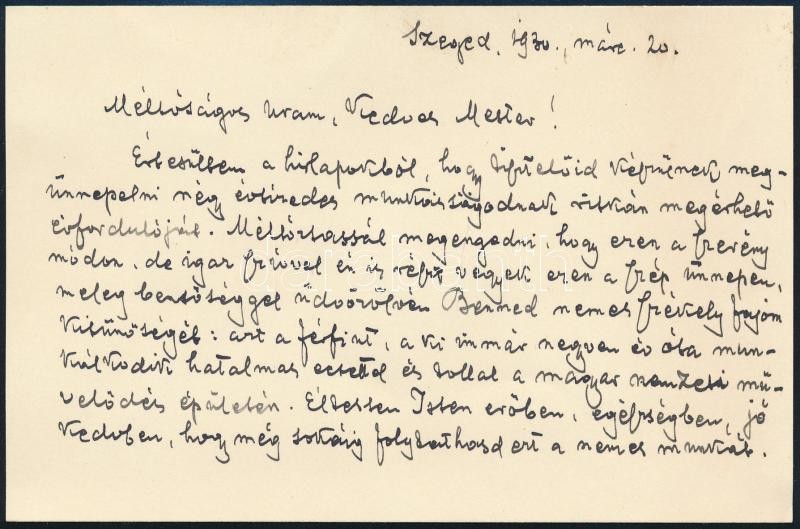 Szeged, 1930., márc. 20.
Méltóságos Uram, Kedves Mester!
Értesültem a hirlapokból, hogy tisztelőid készülnek meg-
ünnepelni négy évtizedes munkásságodnak ritkán megérhető
évfordulóját. Méltóztassál megengedni, hogy ezen a szerény
módon, de igaz szívvel én is részt vegyek ezen a szép ünnepen,
meleg bensőséggel üdvözölvén Benned nemes székely fajom
kitünőségét: azt a férfiut, a ki immár negyven év óta mun-
kálkodik hatalmas ecsettel és tollal a magyar nemzeti mű-
velődés épületén. Éltessen Isten erőben, egészségben, jó
kedvben, hogy még sokáig folytathasd ezt a nemes munkát.